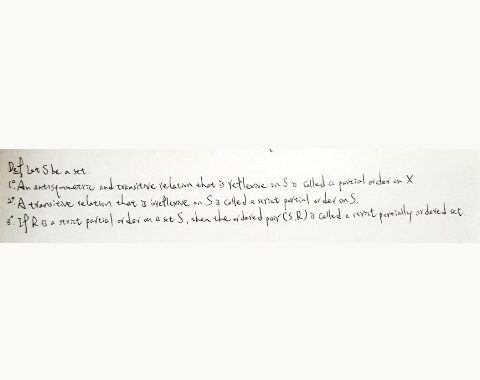 Def Let S be a set.
1°. An antisymmetric and transitive relation that is reflexive on S is called a partial order on X
2°. A transitive relation that is irreflexive on S is called a strict partial order on S.
3°. If R is a strict partial order on a set S, then the ordered pair (S.R) is called a strict partially ordered set.